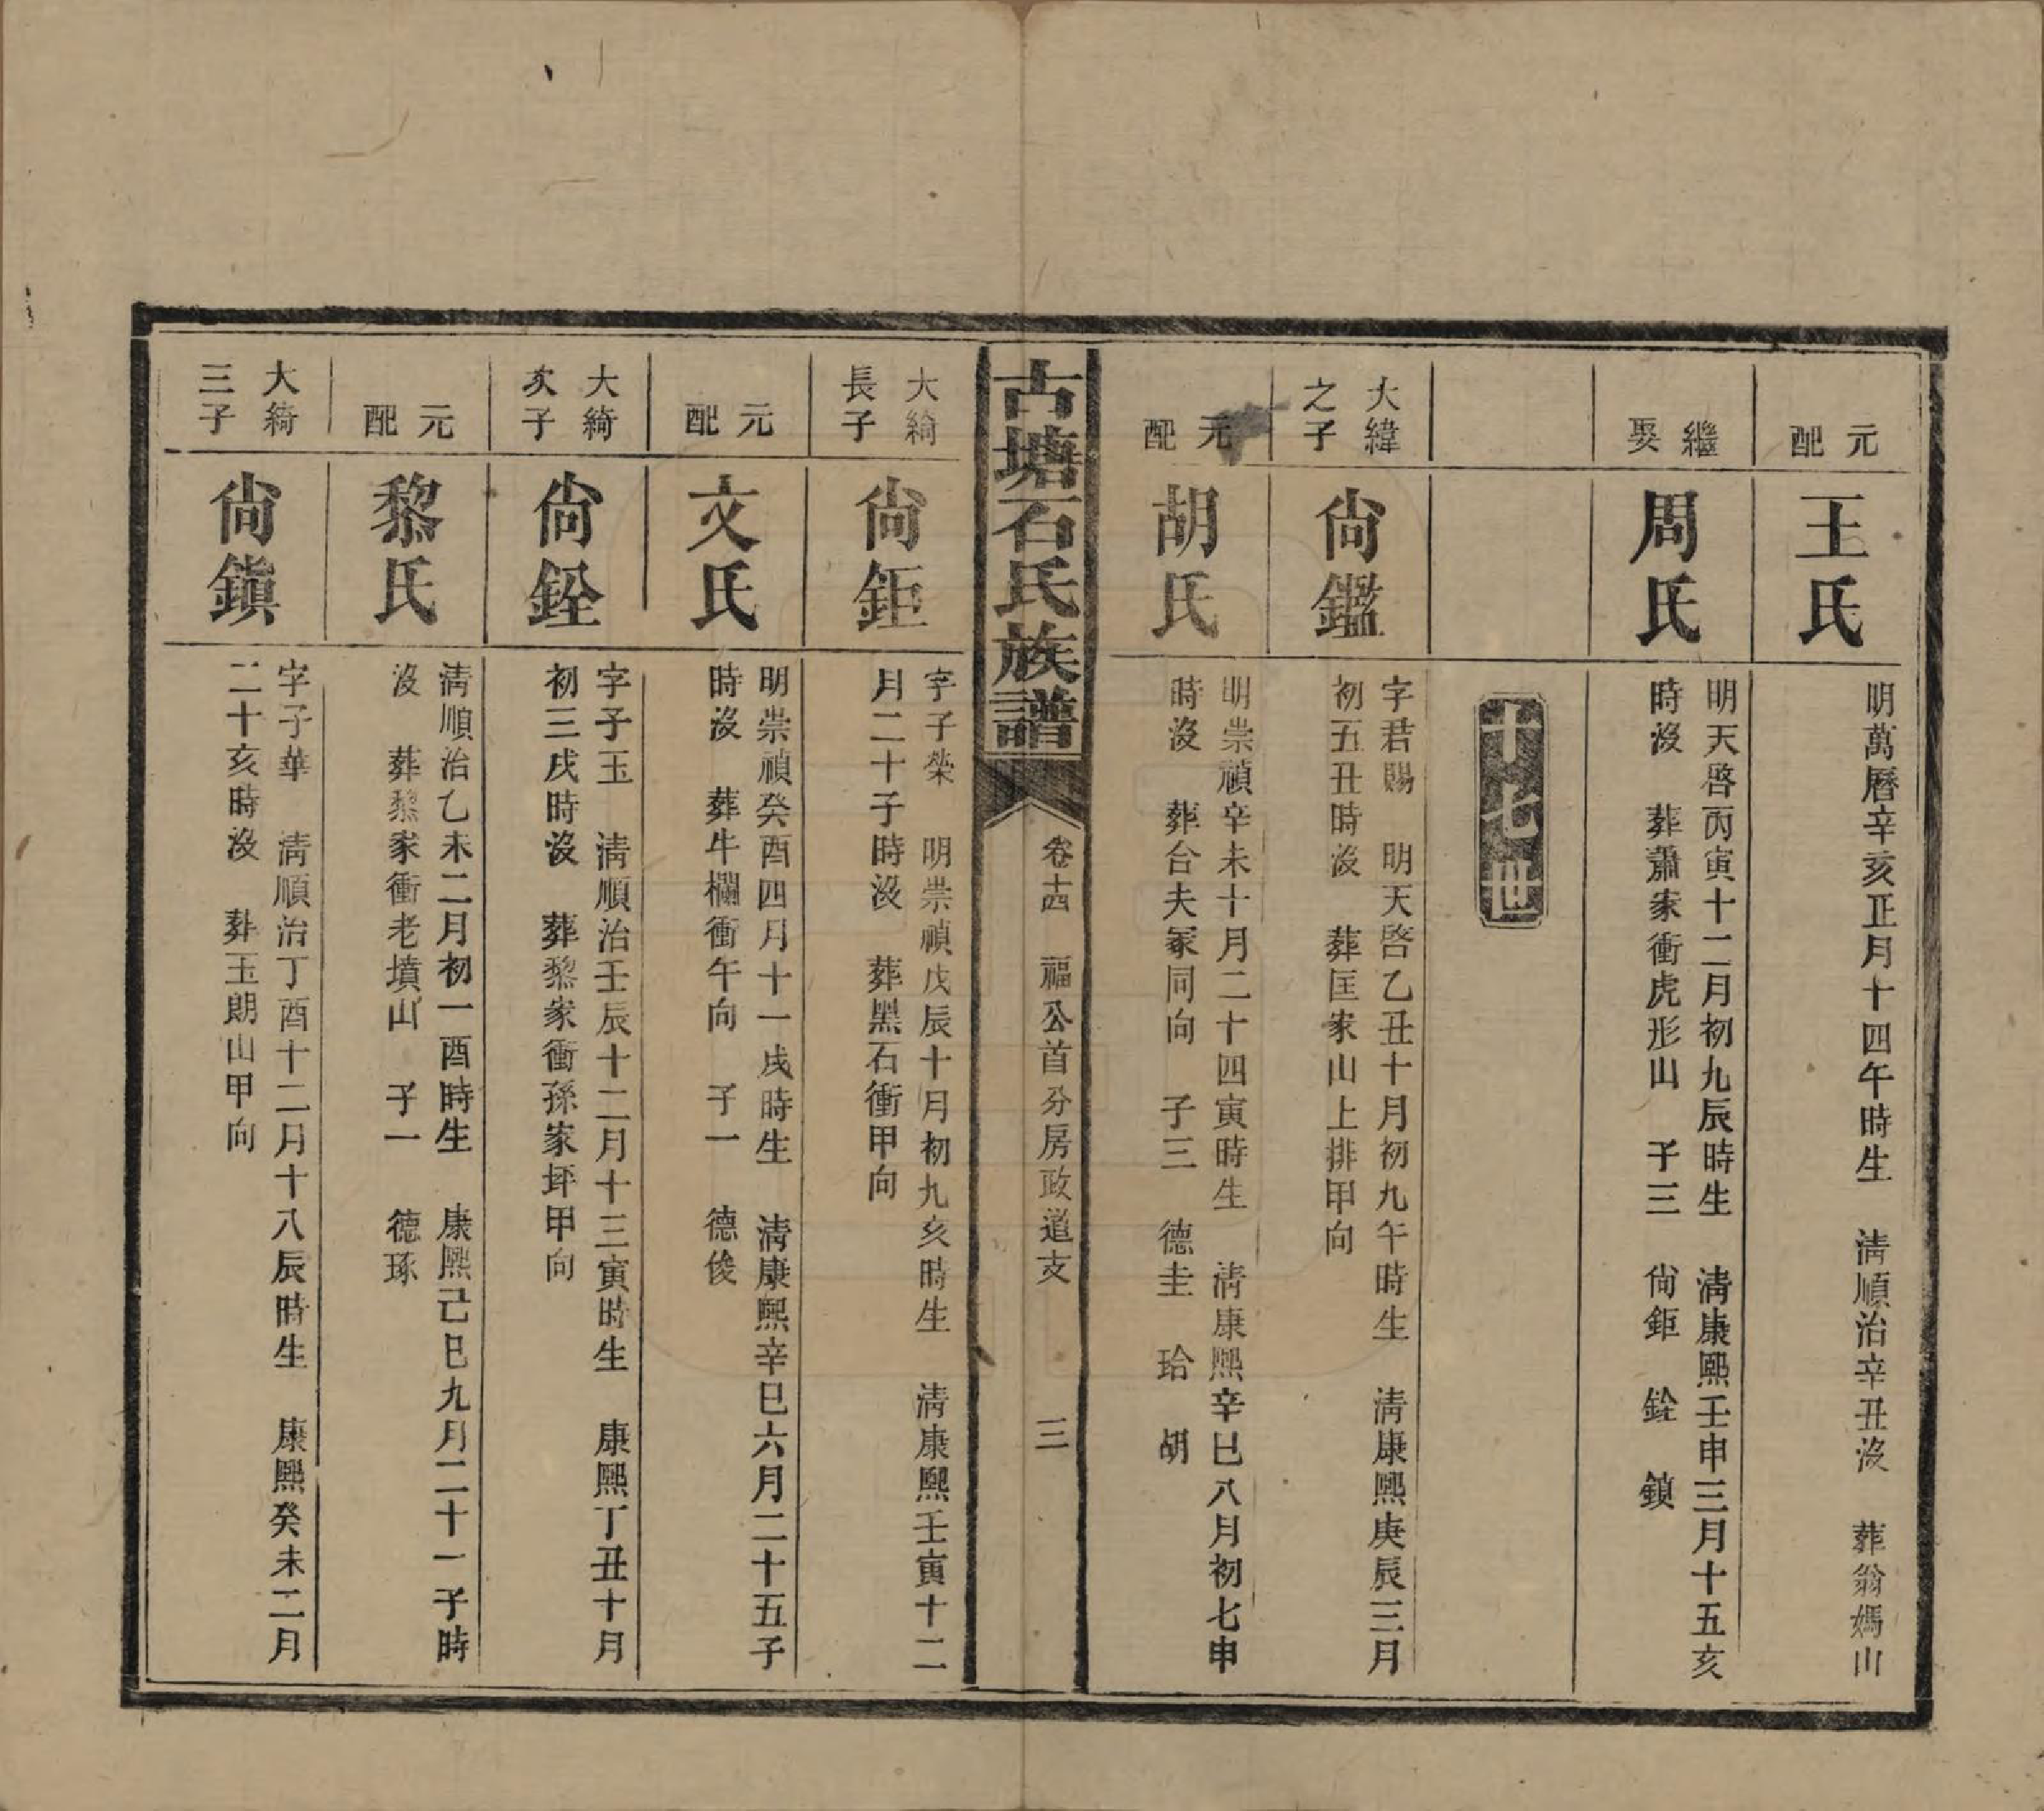 元配
王氏
明萬曆辛亥正月十四午時生　淸順治辛丑沒　葬翁媽山
繼娶
周氏
明天啓丙寅十二月初九辰時生　淸康熙壬申三月十五亥
時沒　葬蕭家衝虎形山　子三　尙鉅　銓　鎭
十七世
大緯
之子
尙鑑
字君賜　明天啓乙丑十月初九午時生　淸康熙庚辰三月
初五丑時沒　葬匡家山上排甲向
元配
胡氏
明崇禎辛未十月二十四寅時生　淸康熙辛巳八月初七申
時沒　葬台夫冢同向　子三　德圭　珆　胡
古塘石氏族譜
卷十四　福公首分房政道支
三
大綺
長子
尙鉅
字子榮　明崇禎戊辰十月初九亥時生　淸康熙壬寅十二
月二十子時沒　葬黑石衝甲向
元配
文氏
明崇禎癸酉四月十一戌時生　淸康熙辛巳六月二十五子
時沒　葬牛欄衝午向　子一　德俊
大綺
次子
尙銓
字子玉　淸順治壬辰十二月十三寅時生　康熙丁丑十月
初三戌時沒　葬黎家衝孫家坪甲向
元配
黎氏
淸順治乙未二月初一酉時生　康熙己巳九月二十一子時
沒　葬黎家衝老墳山　子一　德琢
大綺
三子
尙鎭
字子華　淸順治丁酉十二月十八辰時生　康熙癸未二月
二十亥時沒　葬玉朗山甲向